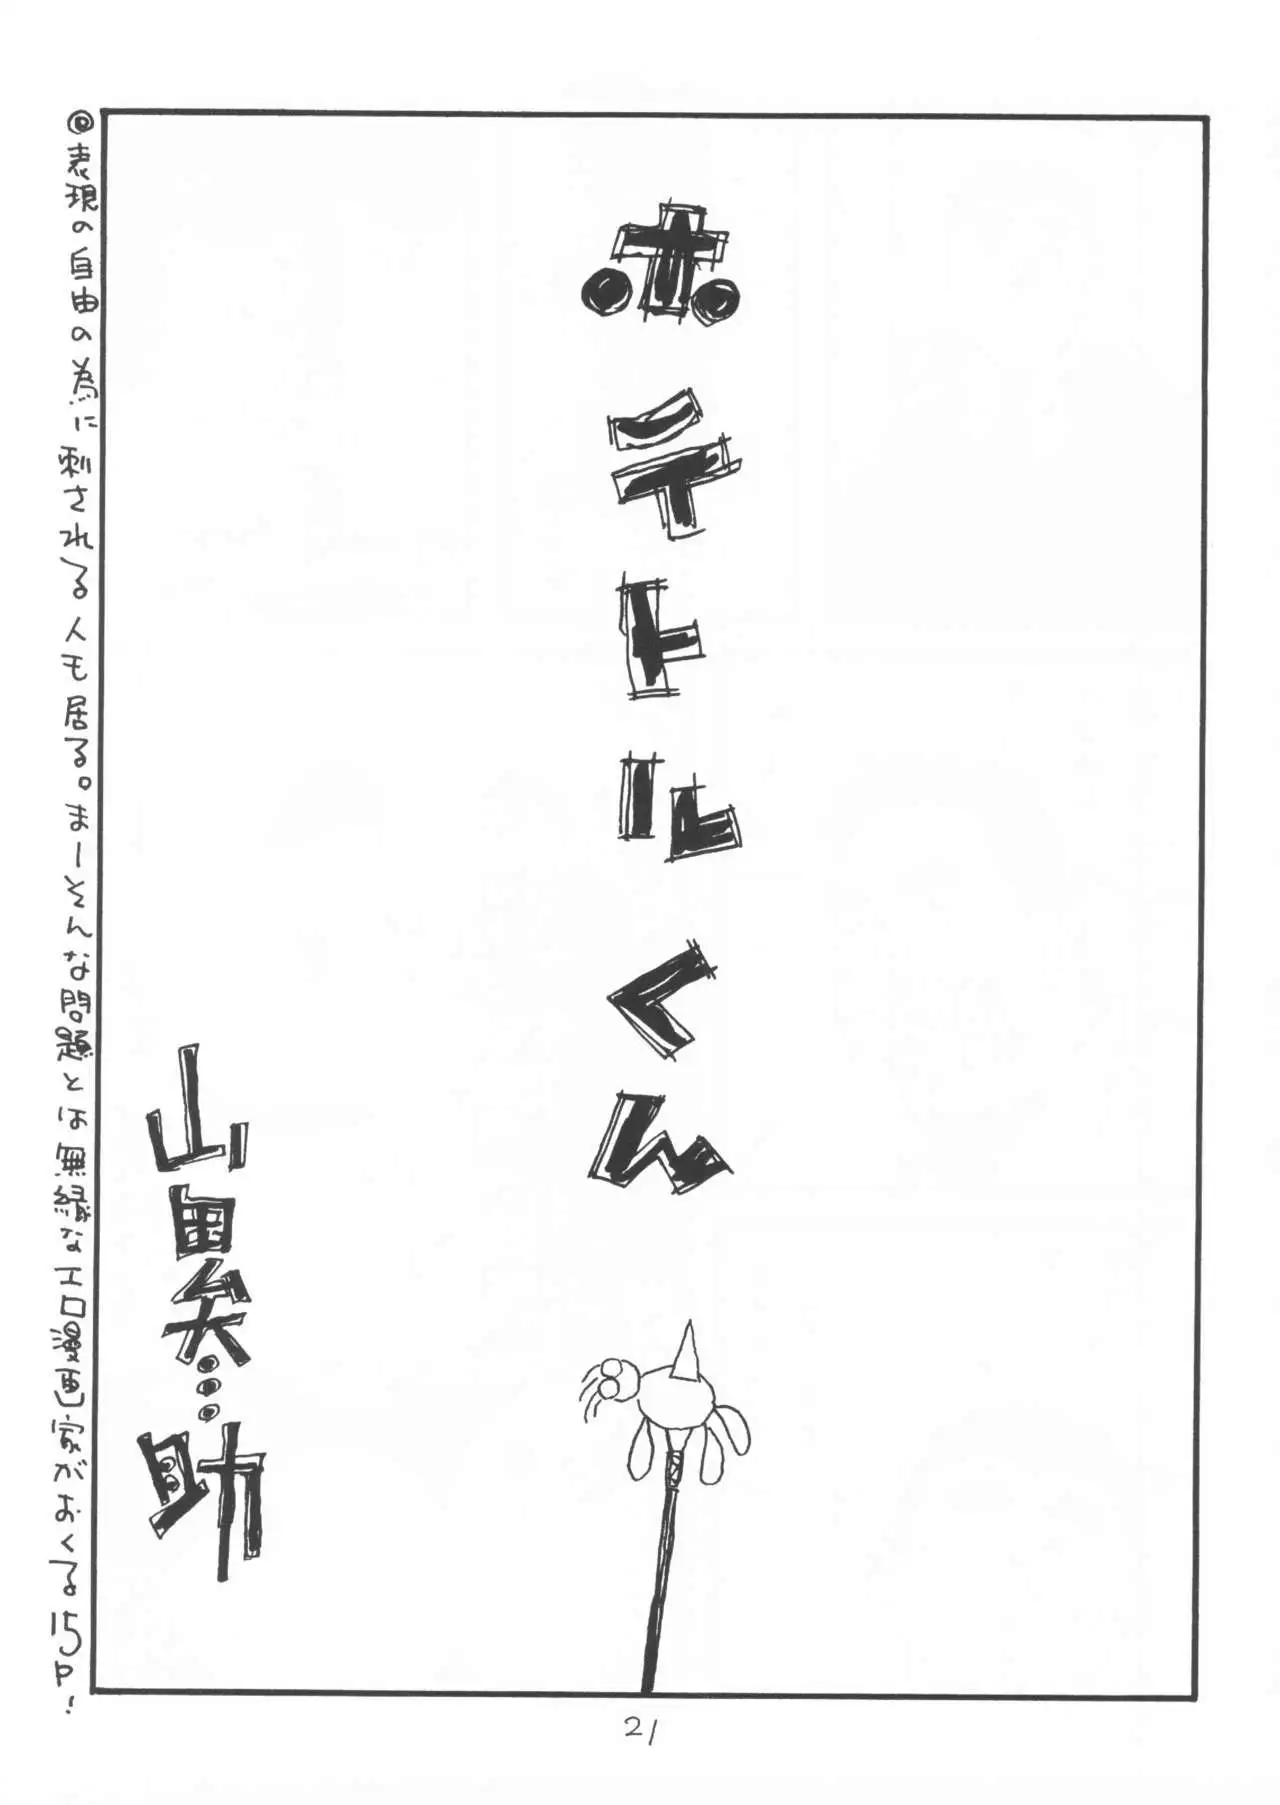 ホシテトルくん
山異矢…助
◎表現の自由の為に刺される人も居る。まーそんな問題とは無縁なエロ漫画家がおくる15P!
21